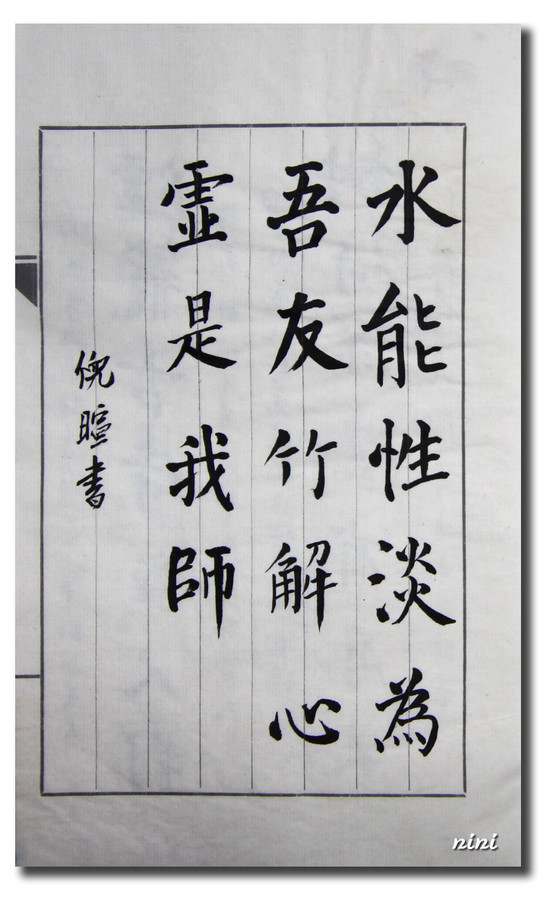 水能性淡為
吾友竹解心
虛是我師
倪暄書
nini